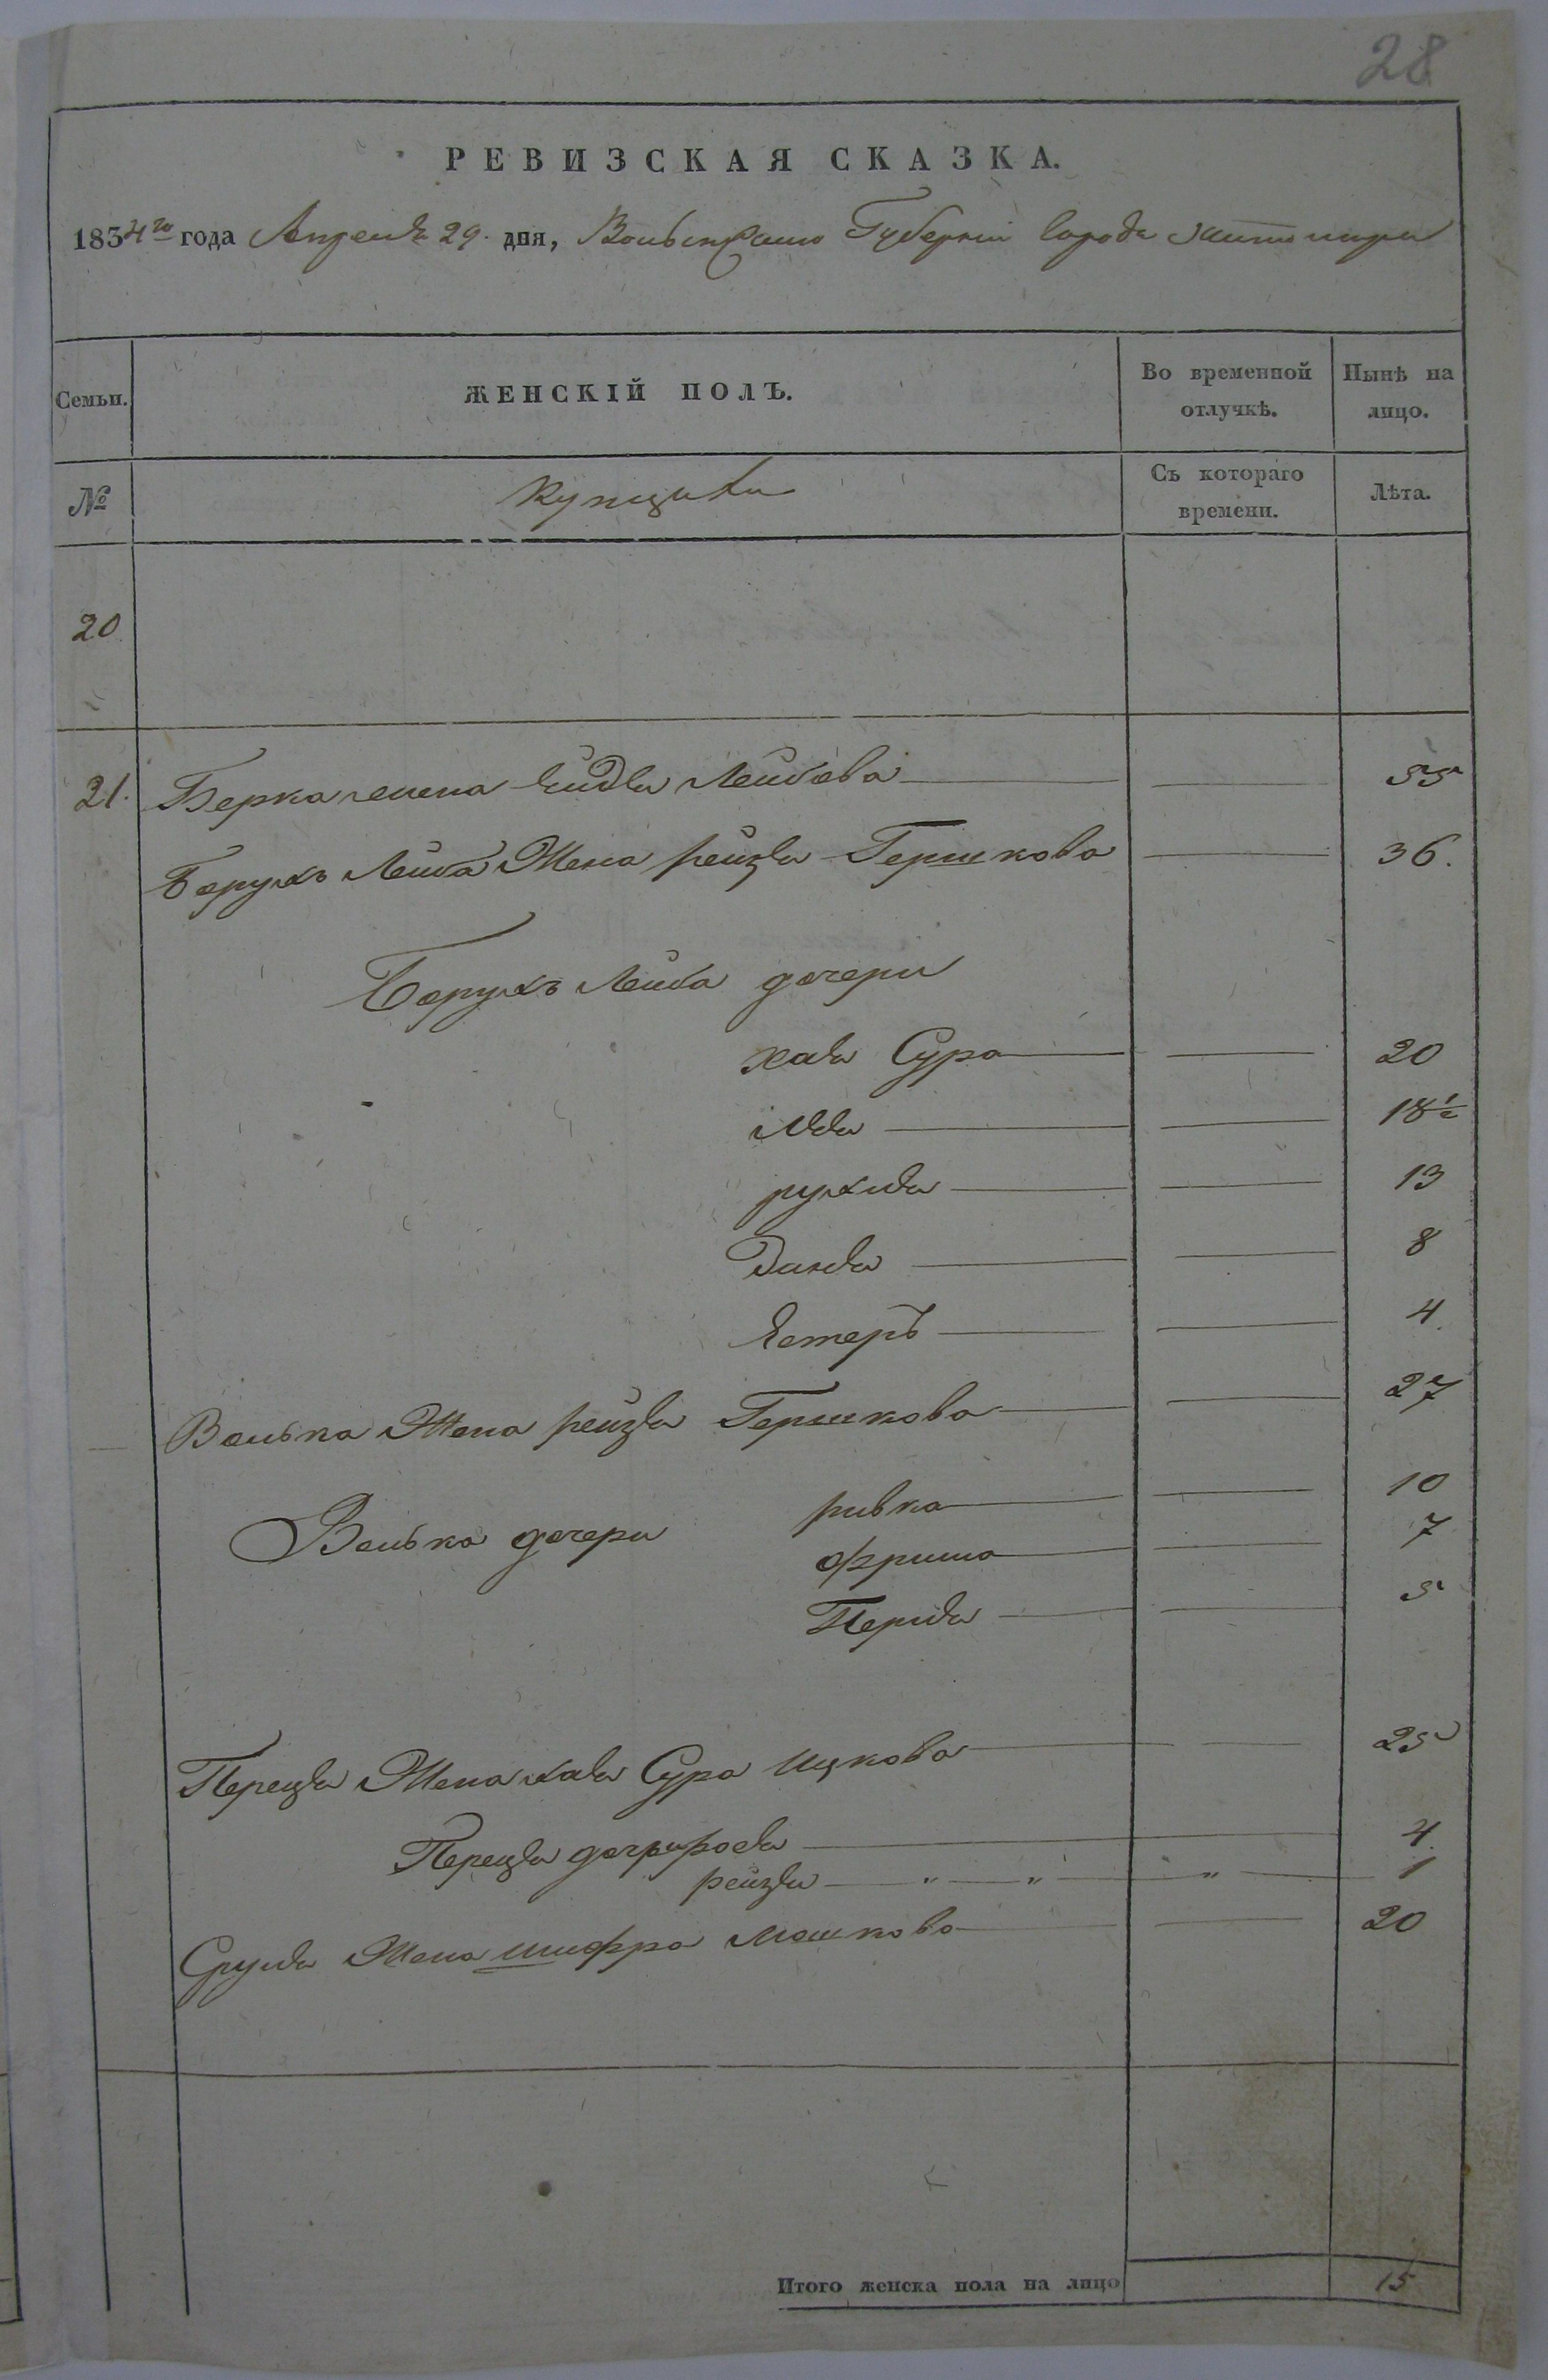 28
РЕВИЗСКАЯ СКАЗКА.
1834го года Апреля 29. дня, Волынской Губернии города Житомира
Семьи.
ЖЕНСКІЙ ПОЛЪ.
Во временной отлучкѣ.
Нынѣ на лицо.
№
Съ котораго времени.
Лѣта.
20
21. Берка жена Лейбова 55
Борухъ Лейба Жена рейзя Гершкова 36.
Борухъ Лейба дочери
хая Сура 20
18½
рухля 13
8
Естеръ 4
Волька Жена рейзя Гершкова 27
Волька дочери
ривка 10
7
Перля 5
Переця Жена хая Сура Ицкова 25
Переця 4.
рейзя — „ — „ — „ — 1
Сруля Жена шифра Мошкова 20
Итого женска пола на лицо 15